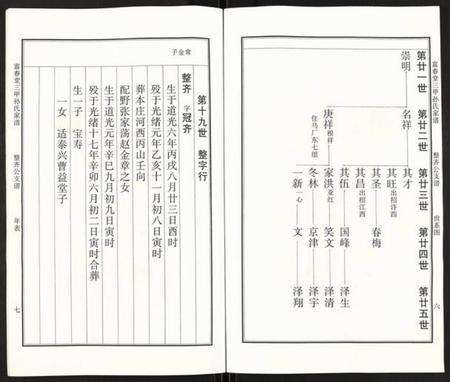 富春堂三甲孙氏家谱
整齐公支谱
世系图
六
第廿一世
第廿二世
第廿三世
第廿四世
第廿五世
崇明
名祥
其才
其旺 出绍许西
其圣
春梅
其昌 出绍江西
其伍
国峰
泽生
庚祥 根祥
住马厂东七组
家洪 亚红
笑文
泽清
冬林
京津
泽宇
一新 一心
文
泽翔
子全常
第十九世 整字行
整齐 字冠齐
生于道光六年丙戌八月廿三日酉时
殁于光绪元年乙亥十一月初八日寅时
葬本庄河西丙山壬向
配野张家荡赵金章之女
生于道光元年辛巳九月初九日寅时
殁于光绪十七年辛卯六月初二日寅时合葬
生一子 宝寿
一女 适泰兴曹益堂子
富春堂三甲孙氏家谱
整齐公支谱
年表
七